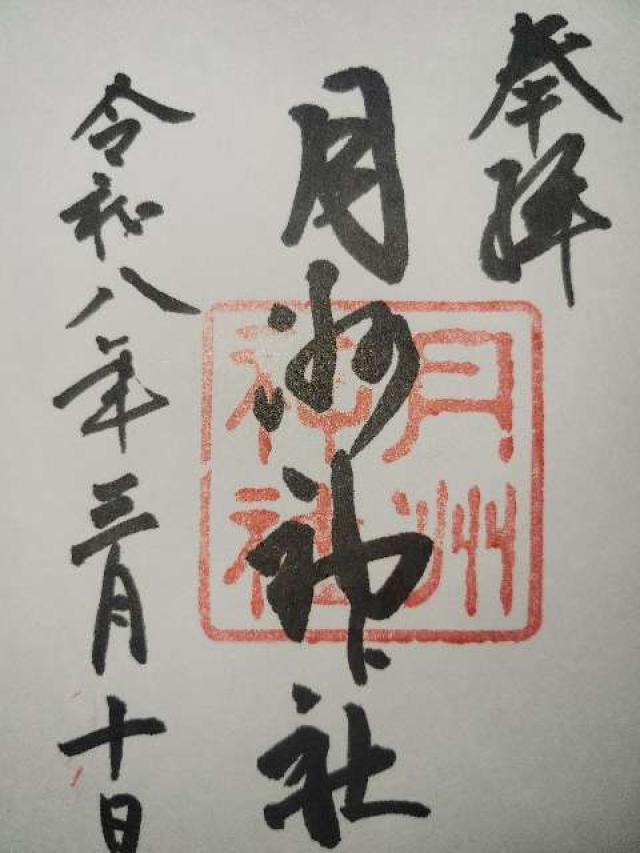 奉拝
月州神社
月州神社
令和八年三月十日